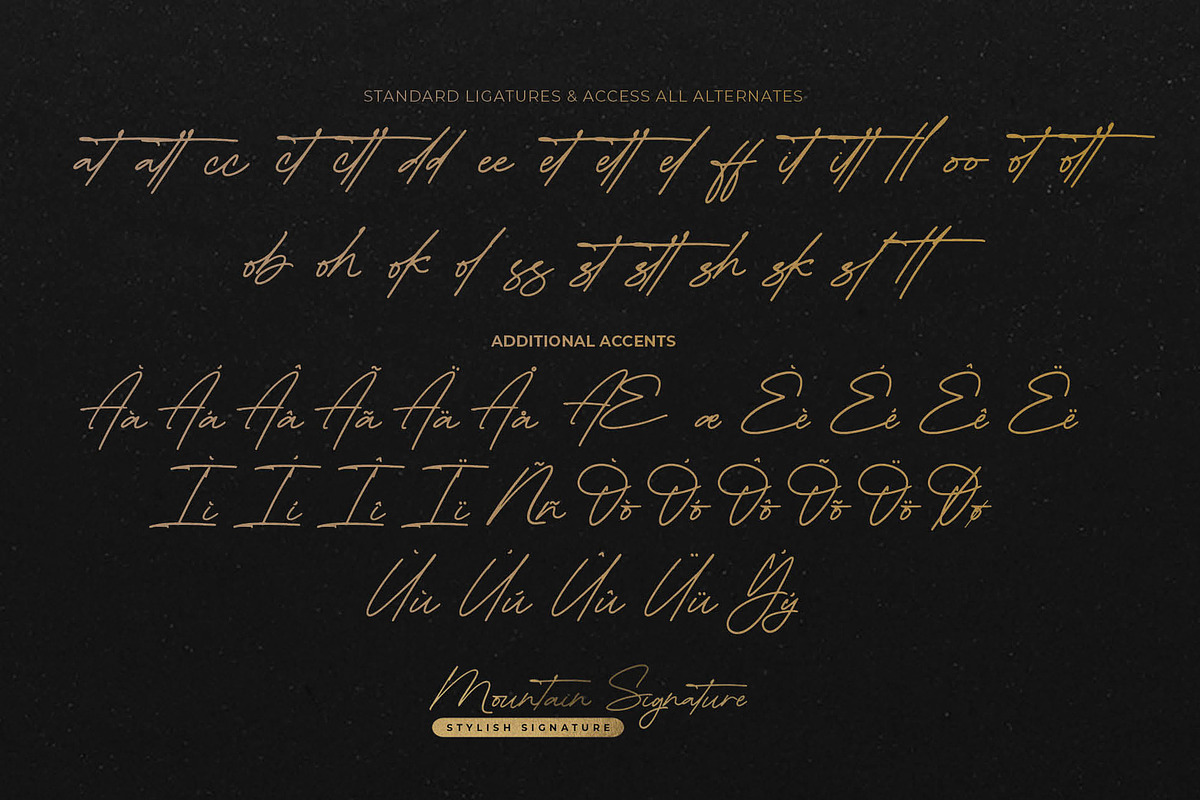 STANDARD LIGATURES & ACCESS ALL ALTERNATES
at att cc ct ctt dd ee et ett el ff it itt ll oo ot ott
ob oh ok ol ss st stt sh sk sl tt
ADDITIONAL ACCENTS
Àà Áá Ââ Ãã Ää Åå Æ æ Èè Éé Êê Ëë
Ìì Íí Îî Ïï Ññ Òò Óó Ôô Õõ Öö Øø
Ùù Úú Ûû Üü Ýý
Mountain Signature
STYLISH SIGNATURE